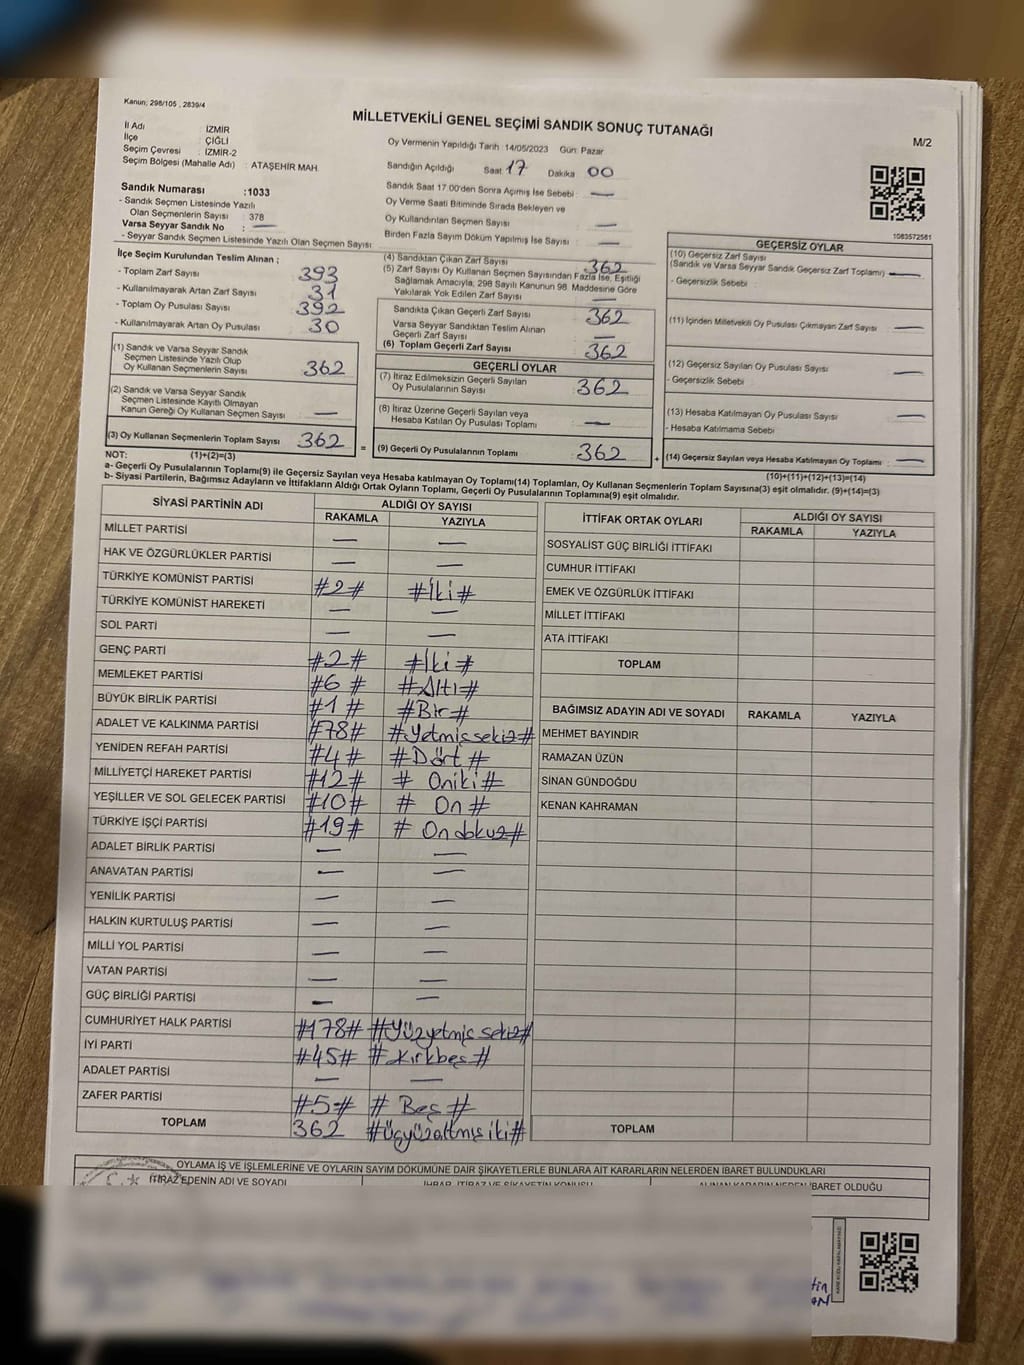 Kanun; 298/105 , 2839/4
MİLLETVEKİLİ GENEL SEÇİMİ SANDIK SONUÇ TUTANAĞI
M/2
İl Adı : İZMİR
İlçe : ÇİĞLİ
Seçim Çevresi : İZMİR-2
Seçim Bölgesi (Mahalle Adı) : ATAŞEHİR MAH.
Oy Vermenin Yapıldığı Tarih :14/05/2023 Gün: Pazar
Sandığın Açıldığı Saat 17 Dakika 00
Sandık Saat 17.00'den Sonra Açımış İse Sebebi : —
Oy Verme Saati Bitiminde Sırada Bekleyen ve
Oy Kullandırılan Seçmen Sayısı : —
Birden Fazla Sayım Döküm Yapılmış İse Sayısı : —
Sandık Numarası :1033
- Sandık Seçmen Listesinde Yazılı
Olan Seçmenlerin Sayısı : 378
Varsa Seyyar Sandık No : —
- Seyyar Sandık Seçmen Listesinde Yazılı Olan Seçmen Sayısı:
1083572581
İlçe Seçim Kurulundan Teslim Alınan ;
- Toplam Zarf Sayısı : 393
- Kullanılmayarak Artan Zarf Sayısı : 31
- Toplam Oy Pusulası Sayısı : 392
- Kullanılmayarak Artan Oy Pusulası : 30
(1) Sandık ve Varsa Seyyar Sandık
Seçmen Listesinde Yazılı Olup
Oy Kullanan Seçmenlerin Sayısı : 362
(2) Sandık ve Varsa Seyyar Sandık
Seçmen Listesinde Kayıtlı Olmayan
Kanun Gereği Oy Kullanan Seçmen Sayısı : —
(3) Oy Kullanan Seçmenlerin Toplam Sayısı : 362
(4) Sandıktan Çıkan Zarf Sayısı : 362
(5) Zarf Sayısı Oy Kullanan Seçmen Sayısından Fazla İse, Eşitliği
Sağlamak Amacıyla, 298 Sayılı Kanunun 98. Maddesine Göre
Yakılarak Yok Edilen Zarf Sayısı : —
Sandıkta Çıkan Geçerli Zarf Sayısı : 362
Varsa Seyyar Sandıktan Teslim Alınan
Geçerli Zarf Sayısı : —
(6) Toplam Geçerli Zarf Sayısı : 362
GEÇERLİ OYLAR
(7) İtiraz Edilmeksizin Geçerli Sayılan
Oy Pusulalarının Sayısı : 362
(8) İtiraz Üzerine Geçerli Sayılan veya
Hesaba Katılan Oy Pusulası Toplamı : —
= (9) Geçerli Oy Pusulalarının Toplamı : 362
GEÇERSİZ OYLAR
(10) Geçersiz Zarf Sayısı
(Sandık ve Varsa Seyyar Sandık Geçersiz Zarf Toplamı) : —
- Geçersizlik Sebebi :
(11) İçinden Milletvekili Oy Pusulası Çıkmayan Zarf Sayısı : —
(12) Geçersiz Sayılan Oy Pusulası Sayısı : —
- Geçersizlik Sebebi
(13) Hesaba Katılmayan Oy Pusulası Sayısı : —
- Hesaba Katılmama Sebebi
+ (14) Geçersiz Sayılan veya Hesaba Katılmayan Oy Toplamı : —
NOT: (1)+(2)=(3)
(10)+(11)+(12)+(13)=(14)
a- Geçerli Oy Pusulalarının Toplamı(9) ile Geçersiz Sayılan veya Hesaba katılmayan Oy Toplamı(14) Toplamları, Oy Kullanan Seçmenlerin Toplam Sayısına(3) eşit olmalıdır. (9)+(14)=(3)
b- Siyasi Partilerin, Bağımsız Adayların ve İttifakların Aldığı Ortak Oyların Toplamı, Geçerli Oy Pusulalarının Toplamına(9) eşit olmalıdır.
SİYASİ PARTİNİN ADI ALDIĞI OY SAYISI
RAKAMLA YAZIYLA
MİLLET PARTİSİ — —
HAK VE ÖZGÜRLÜKLER PARTİSİ — —
TÜRKİYE KOMÜNİST PARTİSİ #2# #İki#
TÜRKİYE KOMÜNİST HAREKETİ — —
SOL PARTİ — —
GENÇ PARTİ #2# #İki#
MEMLEKET PARTİSİ #6# #Altı#
BÜYÜK BİRLİK PARTİSİ #1# #Bir#
ADALET VE KALKINMA PARTİSİ #78# #Yetmişsekiz#
YENİDEN REFAH PARTİSİ #4# #Dört#
MİLLİYETÇİ HAREKET PARTİSİ #12# # Oniki #
YEŞİLLER VE SOL GELECEK PARTİSİ #10# # On #
TÜRKİYE İŞÇİ PARTİSİ #19# # Ondokuz#
ADALET BİRLİK PARTİSİ — —
ANAVATAN PARTİSİ — —
YENİLİK PARTİSİ — —
HALKIN KURTULUŞ PARTİSİ — —
MİLLİ YOL PARTİSİ — —
VATAN PARTİSİ — —
GÜÇ BİRLİĞİ PARTİSİ — —
CUMHURİYET HALK PARTİSİ #178# #Yüzyetmiş sekiz#
İYİ PARTİ #45# #Kırkbeş#
ADALET PARTİSİ — —
ZAFER PARTİSİ #5# # Beş #
TOPLAM 362 #üçyüzaltmış iki#
İTTİFAK ORTAK OYLARI ALDIĞI OY SAYISI
RAKAMLA YAZIYLA
SOSYALİST GÜÇ BİRLİĞİ İTTİFAKI
CUMHUR İTTİFAKI
EMEK VE ÖZGÜRLÜK İTTİFAKI
MİLLET İTTİFAKI
ATA İTTİFAKI
TOPLAM
BAĞIMSIZ ADAYIN ADI VE SOYADI RAKAMLA YAZIYLA
MEHMET BAYINDIR
RAMAZAN ÜZÜN
SİNAN GÜNDOĞDU
KENAN KAHRAMAN
TOPLAM
OYLAMA İŞ VE İŞLEMLERİNE VE OYLARIN SAYIM DÖKÜMÜNE DAİR ŞİKAYETLERLE BUNLARA AİT KARARLARIN NELERDEN İBARET BULUNDUKLARI
İTİRAZ EDENİN ADI VE SOYADI İHBAR, İTİRAZ VE ŞİKAYETİN KONUSU ALINAN KARARIN NEDEN İBARET OLDUĞU